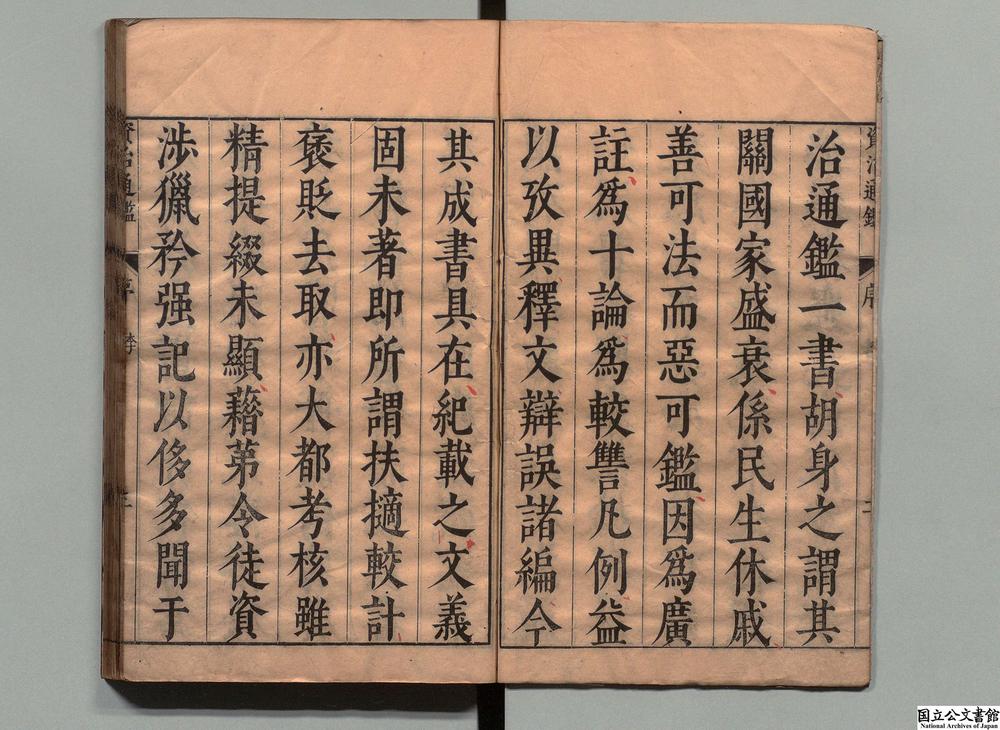 治通鑑一書胡身之謂其
關國家盛衰係民生休戚
善可法而惡可鑑因爲廣
註爲十論爲較讐凡例益
以攷異釋文辯誤諸編今
其成書具在紀載之文義
固未著即所謂扶擿較計
褒貶去取亦大都考核雖
精提綴未顯藉第令徒資
涉獵矜强記以侈多聞于
資治通鑑
序
二
資治通鑑
序
李
二
国立公文書館
National Archives of Japan